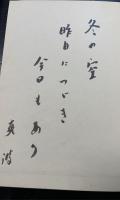 冬の空
昨日につづき
今日もあり
真砂